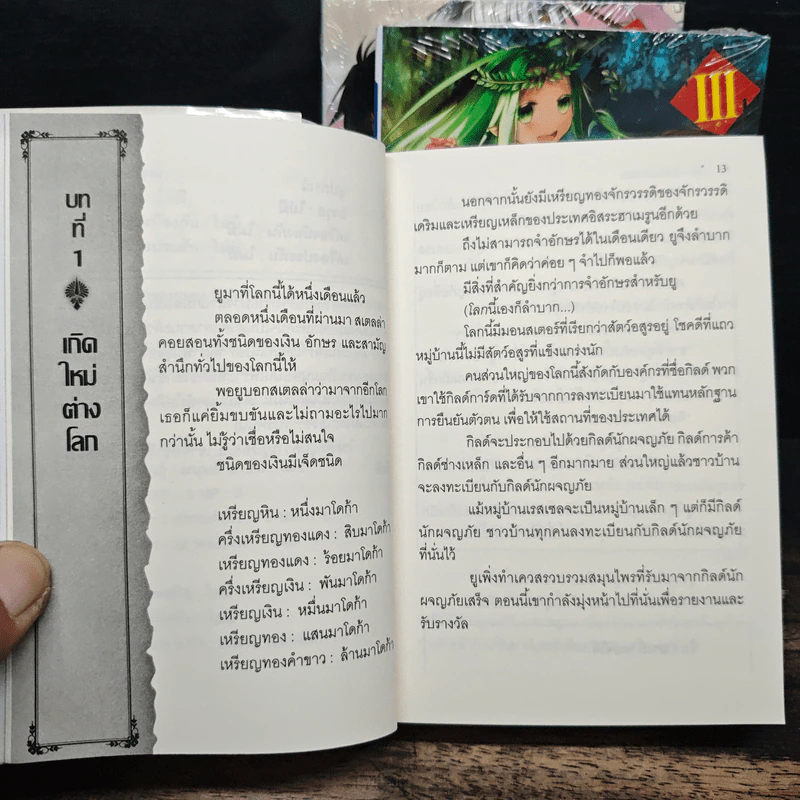 III
บท
ที่
1
เกิด
ใหม่
ต่าง
โลก
ยูมาที่โลกนี้ได้หนึ่งเดือนแล้ว
ตลอดหนึ่งเดือนที่ผ่านมา สเตลล่า
คอยสอนทั้งชนิดของเงิน อักษร และสามัญ
สำนึกทั่วไปของโลกนี้ให้
พอยูบอกสเตลล่าว่ามาจากอีกโลก
เธอก็แค่ยิ้มขบขันและไม่ถามอะไรไปมาก
กว่านั้น ไม่รู้ว่าเชื่อหรือไม่สนใจ
ชนิดของเงินมีเจ็ดชนิด
เหรียญหิน : หนึ่งมาโดก้า
ครึ่งเหรียญทองแดง : สิบมาโดก้า
เหรียญทองแดง : ร้อยมาโดก้า
ครึ่งเหรียญเงิน : พันมาโดก้า
เหรียญเงิน : หมื่นมาโดก้า
เหรียญทอง : แสนมาโดก้า
เหรียญทองคำขาว : ล้านมาโดก้า
13
นอกจากนั้นยังมีเหรียญทองจักรวรรดิของจักรวรรดิ
เดริมและเหรียญเหล็กของประเทศอิสระฮาเมรูนอีกด้วย
ถึงไม่สามารถจำอักษรได้ในเดือนเดียว ยูจึงลำบาก
มากก็ตาม แต่เขาก็คิดว่าค่อย ๆ จำไปก็พอแล้ว
มีสิ่งที่สำคัญยิ่งกว่าการจำอักษรสำหรับยู
(โลกนี้เองก็ลำบาก...)
โลกนี้มีมอนสเตอร์ที่เรียกว่าสัตว์อสูรอยู่ โชคดีที่แถว
หมู่บ้านนี้ไม่มีสัตว์อสูรที่แข็งแกร่งนัก
คนส่วนใหญ่ของโลกนี้สังกัดกับองค์กรที่ชื่อกิลด์ พวก
เขาใช้กิลด์การ์ดที่ได้รับจากการลงทะเบียนมาใช้แทนหลักฐาน
การยืนยันตัวตน เพื่อให้ใช้สถานที่ของประเทศได้
กิลด์จะประกอบไปด้วยกิลด์นักผจญภัย กิลด์การค้า
กิลด์ช่างเหล็ก และอื่น ๆ อีกมากมาย ส่วนใหญ่แล้วชาวบ้าน
จะลงทะเบียนกับกิลด์นักผจญภัย
แม้หมู่บ้านเรสเซลจะเป็นหมู่บ้านเล็ก ๆ แต่ก็มีกิลด์
นักผจญภัย ชาวบ้านทุกคนลงทะเบียนกับกิลด์นักผจญภัย
ที่นั่นไว้
ยูเพิ่งทำเควสรวบรวมสมุนไพรที่รับมาจากกิลด์นัก
ผจญภัยเสร็จ ตอนนี้เขากำลังมุ่งหน้าไปที่นั่นเพื่อรายงานและ
รับรางวัล